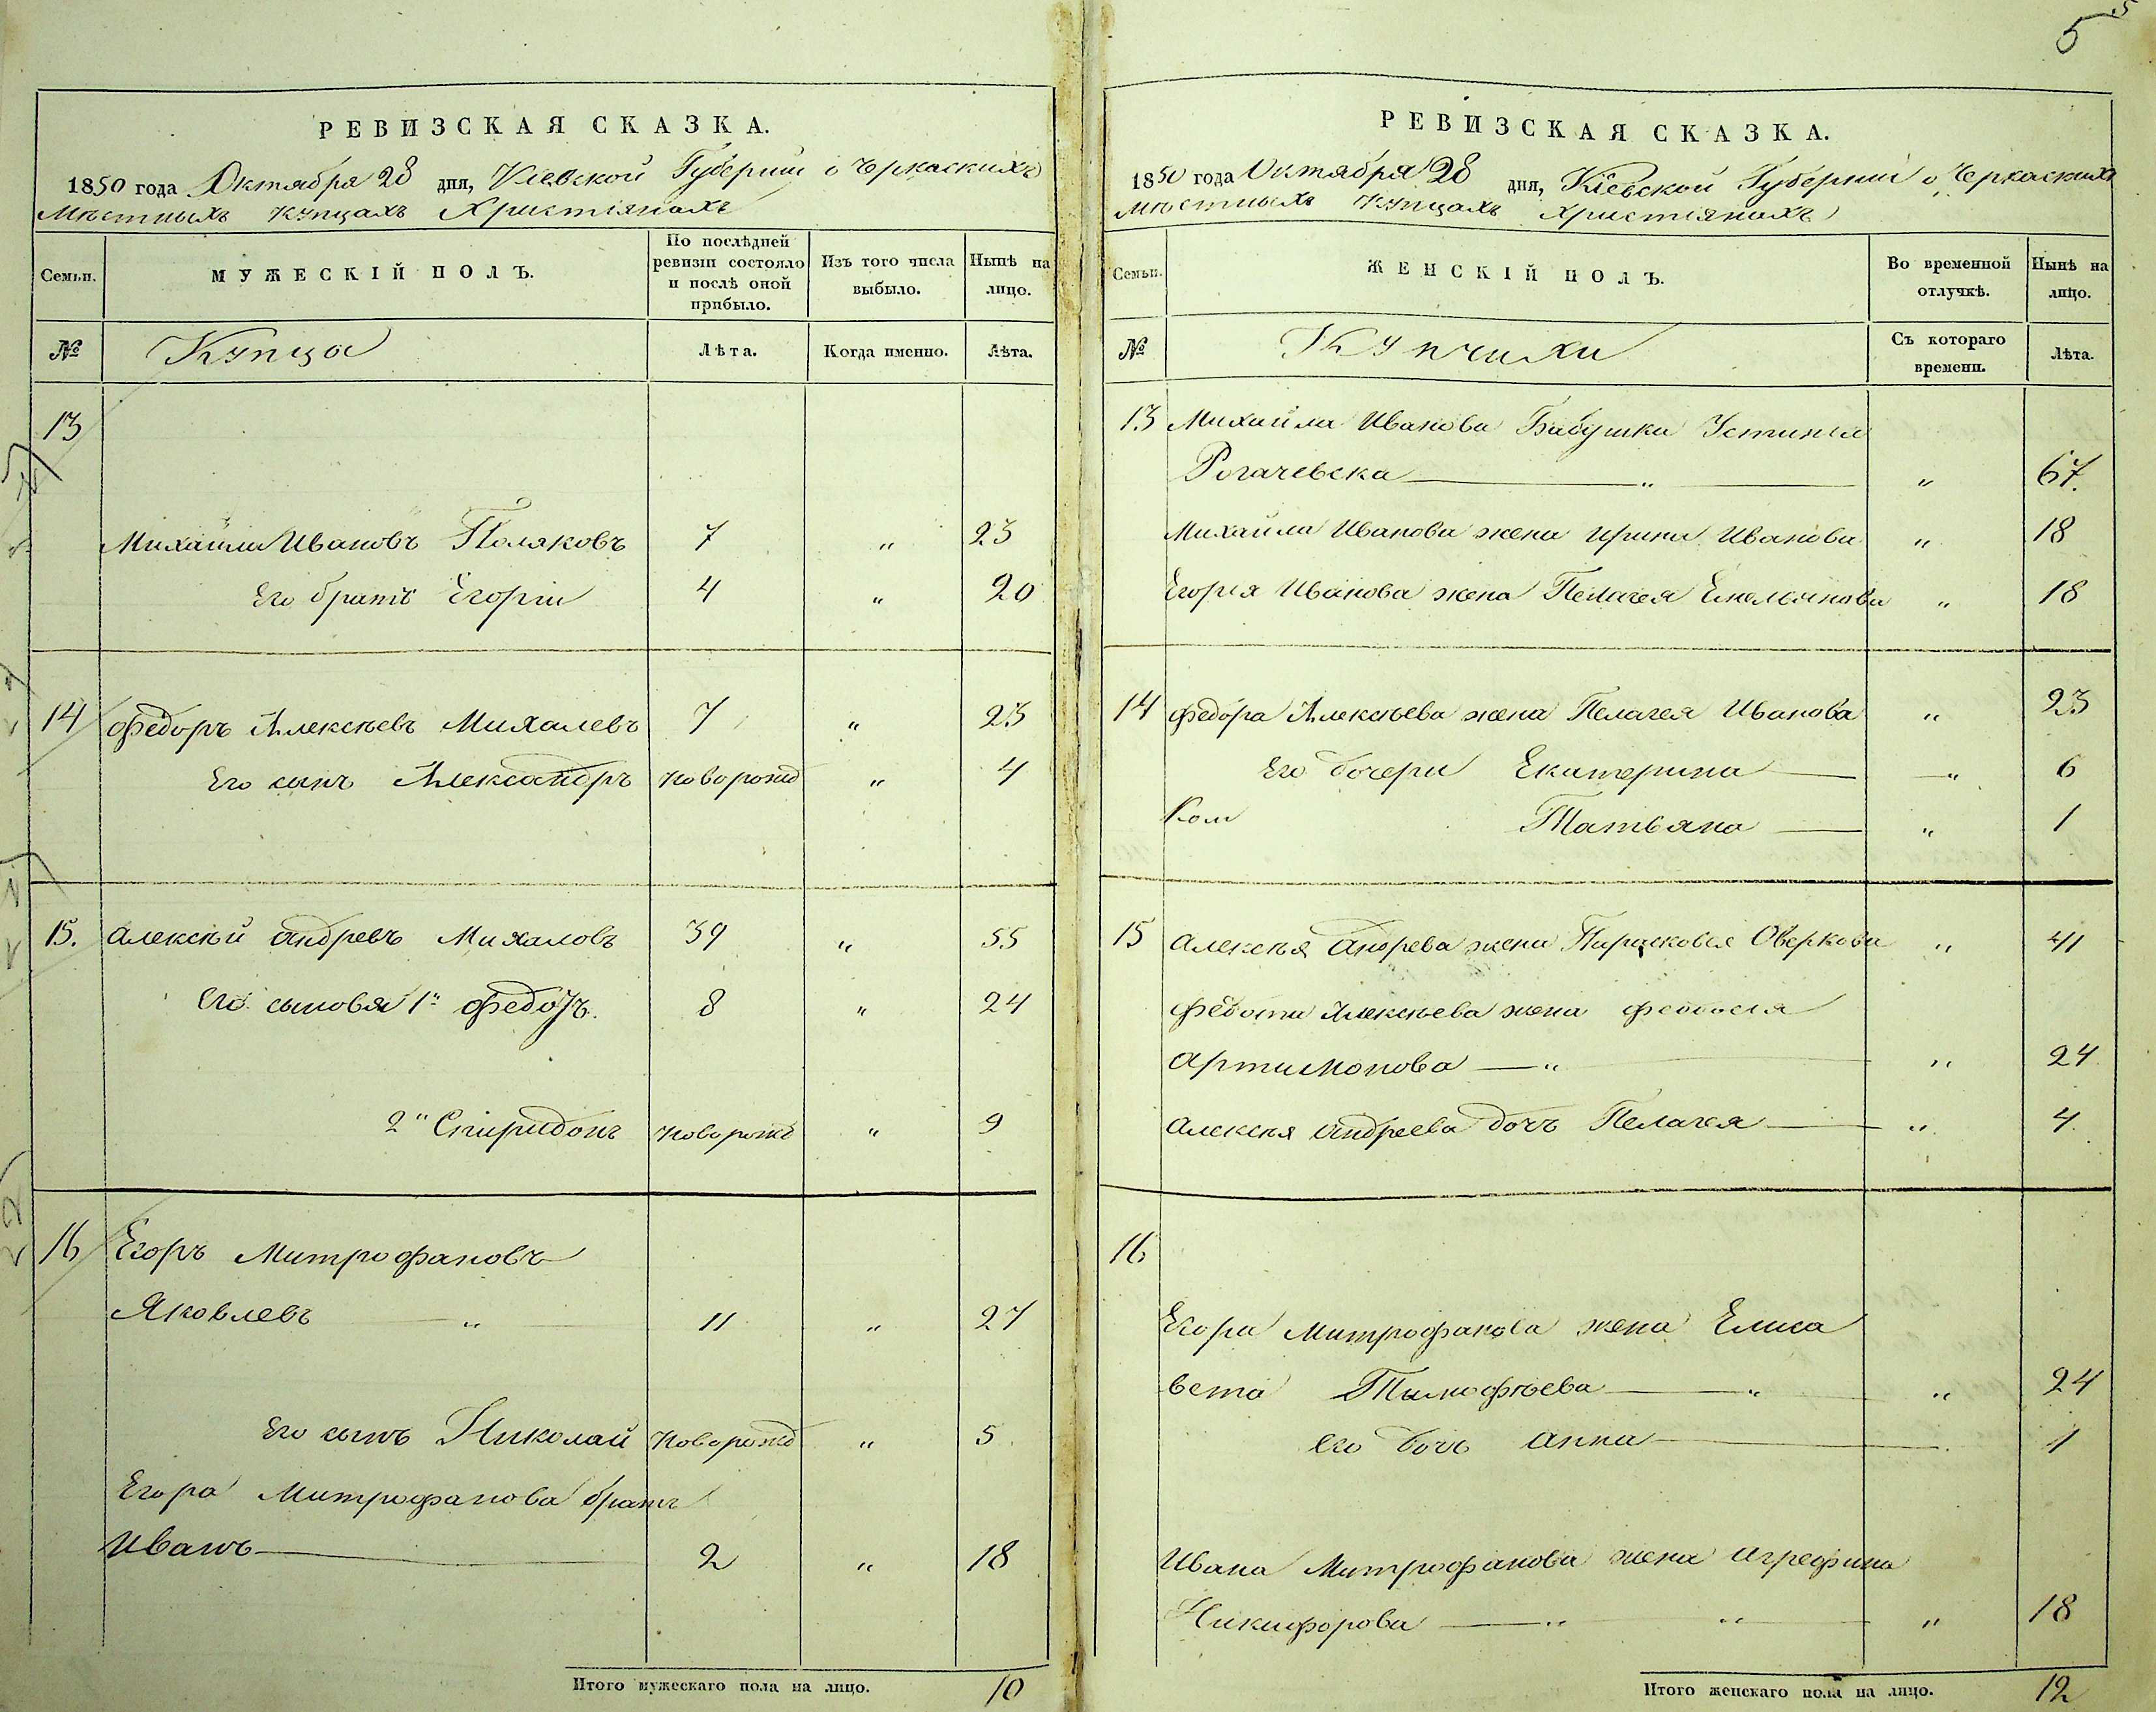 5
РЕВИЗСКАЯ СКАЗКА.
1850 года Октября 28 дня, Кіевской Губерніи о Черкаскихъ
Мѣстныхъ купцахъ Христіянахъ
Семьи. МУЖЕСКІЙ ПОЛЪ. По послѣдней ревизіи состояло и послѣ оной прибыло. Изъ того числа выбыло. Нынѣ на лицо.
№ Купцы Лѣта. Когда именно. Лѣта.
13
Михайла Ивановъ Поляковъ 7 " 23
Его братъ Егорій 4 " 20
14 Федоръ Алексѣевъ Михалевъ 7 " 23
Его сынъ Александръ новорожд " 4
15. Алексѣй Андревъ Михаловъ 39 " 55
Его сыновья 1й Федотъ. 8 " 24
2й Спиридонъ новорожд " 9
16 Егоръ Митрофановъ
Яковлевъ " 11 " 27
Его сынъ Николай новорожд " 5
Егора Митрофанова братъ
Иванъ 2 " 18
Итого мужескаго пола на лицо. 10
РЕВИЗСКАЯ СКАЗКА.
1850 года Октября 28 дня, Кіевской Губерніи о Черкаскихъ
Мѣстныхъ купцахъ Христіянахъ
Семьи. ЖЕНСКІЙ ПОЛЪ. Во временной отлучкѣ. Нынѣ на лицо.
№ Купчихи Съ котораго времени. Лѣта.
13 Михайла Иванова Бабушка Устинья
Рогачевска " " 67.
Михайла Иванова жена Ирина Иванова " 18
Егорія Иванова жена Пелагея Емельянова " 18
14 Федора Алексѣева жена Пелагея Иванова " 23
Его дочери Екатерина " 6
Татьяна " 1
15 Алексѣя Андрева жена Парасковея Оверкова " 41
Федота Алексѣева жена Феодосія
Артимонова " " 24
Алексѣя Андреева дочь Пелагея " 4
16
Егора Митрофанова жена Елиса
вета Тимофѣева " " 24
Его дочь Анна 1
Ивана Митрофанова жена Агрефина
Никифорова " " " 18
Итого женскаго пола на лицо. 12